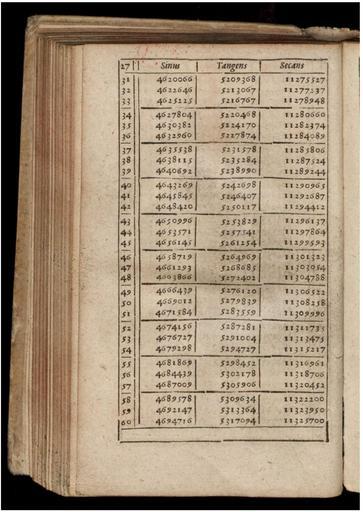 27 Sinus Tangens Secans
31 4620066 5209368 11275527
32 4622646 5213067 11277237
33 4625225 5216767 11278948
34 4627804 5220468 11280660
35 4630382 5224170 11282374
36 4632960 5227874 11284089
37 4635538 5231578 11285806
38 4638115 5235284 11287524
39 4640692 5238990 11289244
40 4643269 5242698 11290965
41 4645845 5246407 11292687
42 4648420 5250117 11294412
43 4650996 5253829 11296137
44 4653571 5257541 11297864
45 4656145 5261254 11299593
46 4658719 5264969 11301323
47 4661293 5268685 11303054
48 4663866 5272402 11304788
49 4666439 5276120 11306522
50 4669012 5279839 11308258
51 4671584 5283559 11309996
52 4674156 5287281 11311735
53 4676727 5291004 11313475
54 4679298 5294727 11315217
55 4681869 5298452 11316961
56 4684439 5302178 11318706
57 4687009 5305906 11320452
58 4689578 5309634 11322200
59 4692147 5313364 11323950
60 4694716 5317094 11325700